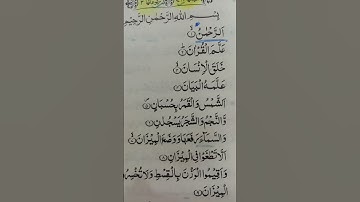 بِسْمِ اللهِ الرَّحْمٰنِ الرَّحِيْمِ
اَلرَّحْمٰنُ ۙ ﴿۱﴾
عَلَّمَ الْقُرْاٰنَ ؕ ﴿۲﴾
خَلَقَ الْاِنْسَانَ ۙ ﴿۳﴾
عَلَّمَهُ الْبَيَانَ ﴿۴﴾
اَلشَّمْسُ وَالْقَمَرُ بِحُسْبَانٍ ﴿۵﴾
وَّالنَّجْمُ وَالشَّجَرُ يَسْجُدٰنِ ﴿۶﴾
وَالسَّمَآءَ رَفَعَهَا وَوَضَعَ الْمِيْزَانَ ۙ ﴿۷﴾
اَلَّا تَطْغَوْا فِي الْمِيْزَانِ ﴿۸﴾
وَاَقِيْمُوا الْوَزْنَ بِالْقِسْطِ وَلَا تُخْسِرُوا
الْمِيْزَانَ ﴿۹﴾